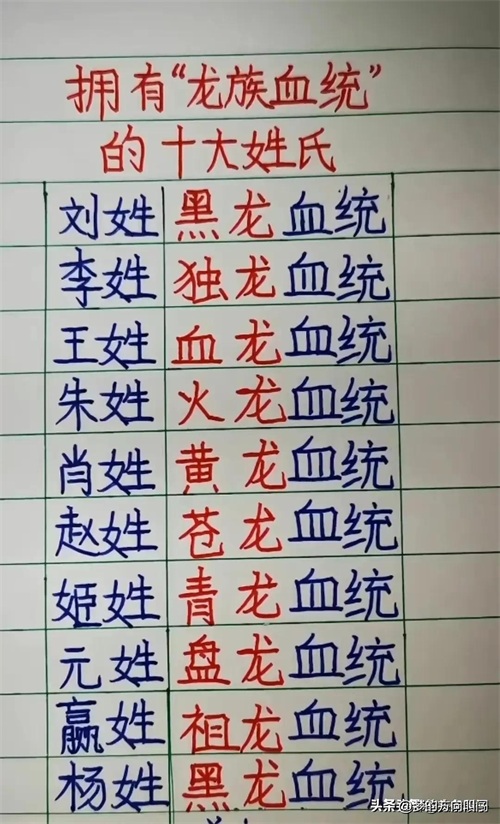 拥有“龙族血统”
的十大姓氏
刘姓 黑龙血统
李姓 独龙血统
王姓 血龙血统
朱姓 火龙血统
肖姓 黄龙血统
赵姓 苍龙血统
姬姓 青龙血统
元姓 盘龙血统
嬴姓 祖龙血统
杨姓 黑龙血统